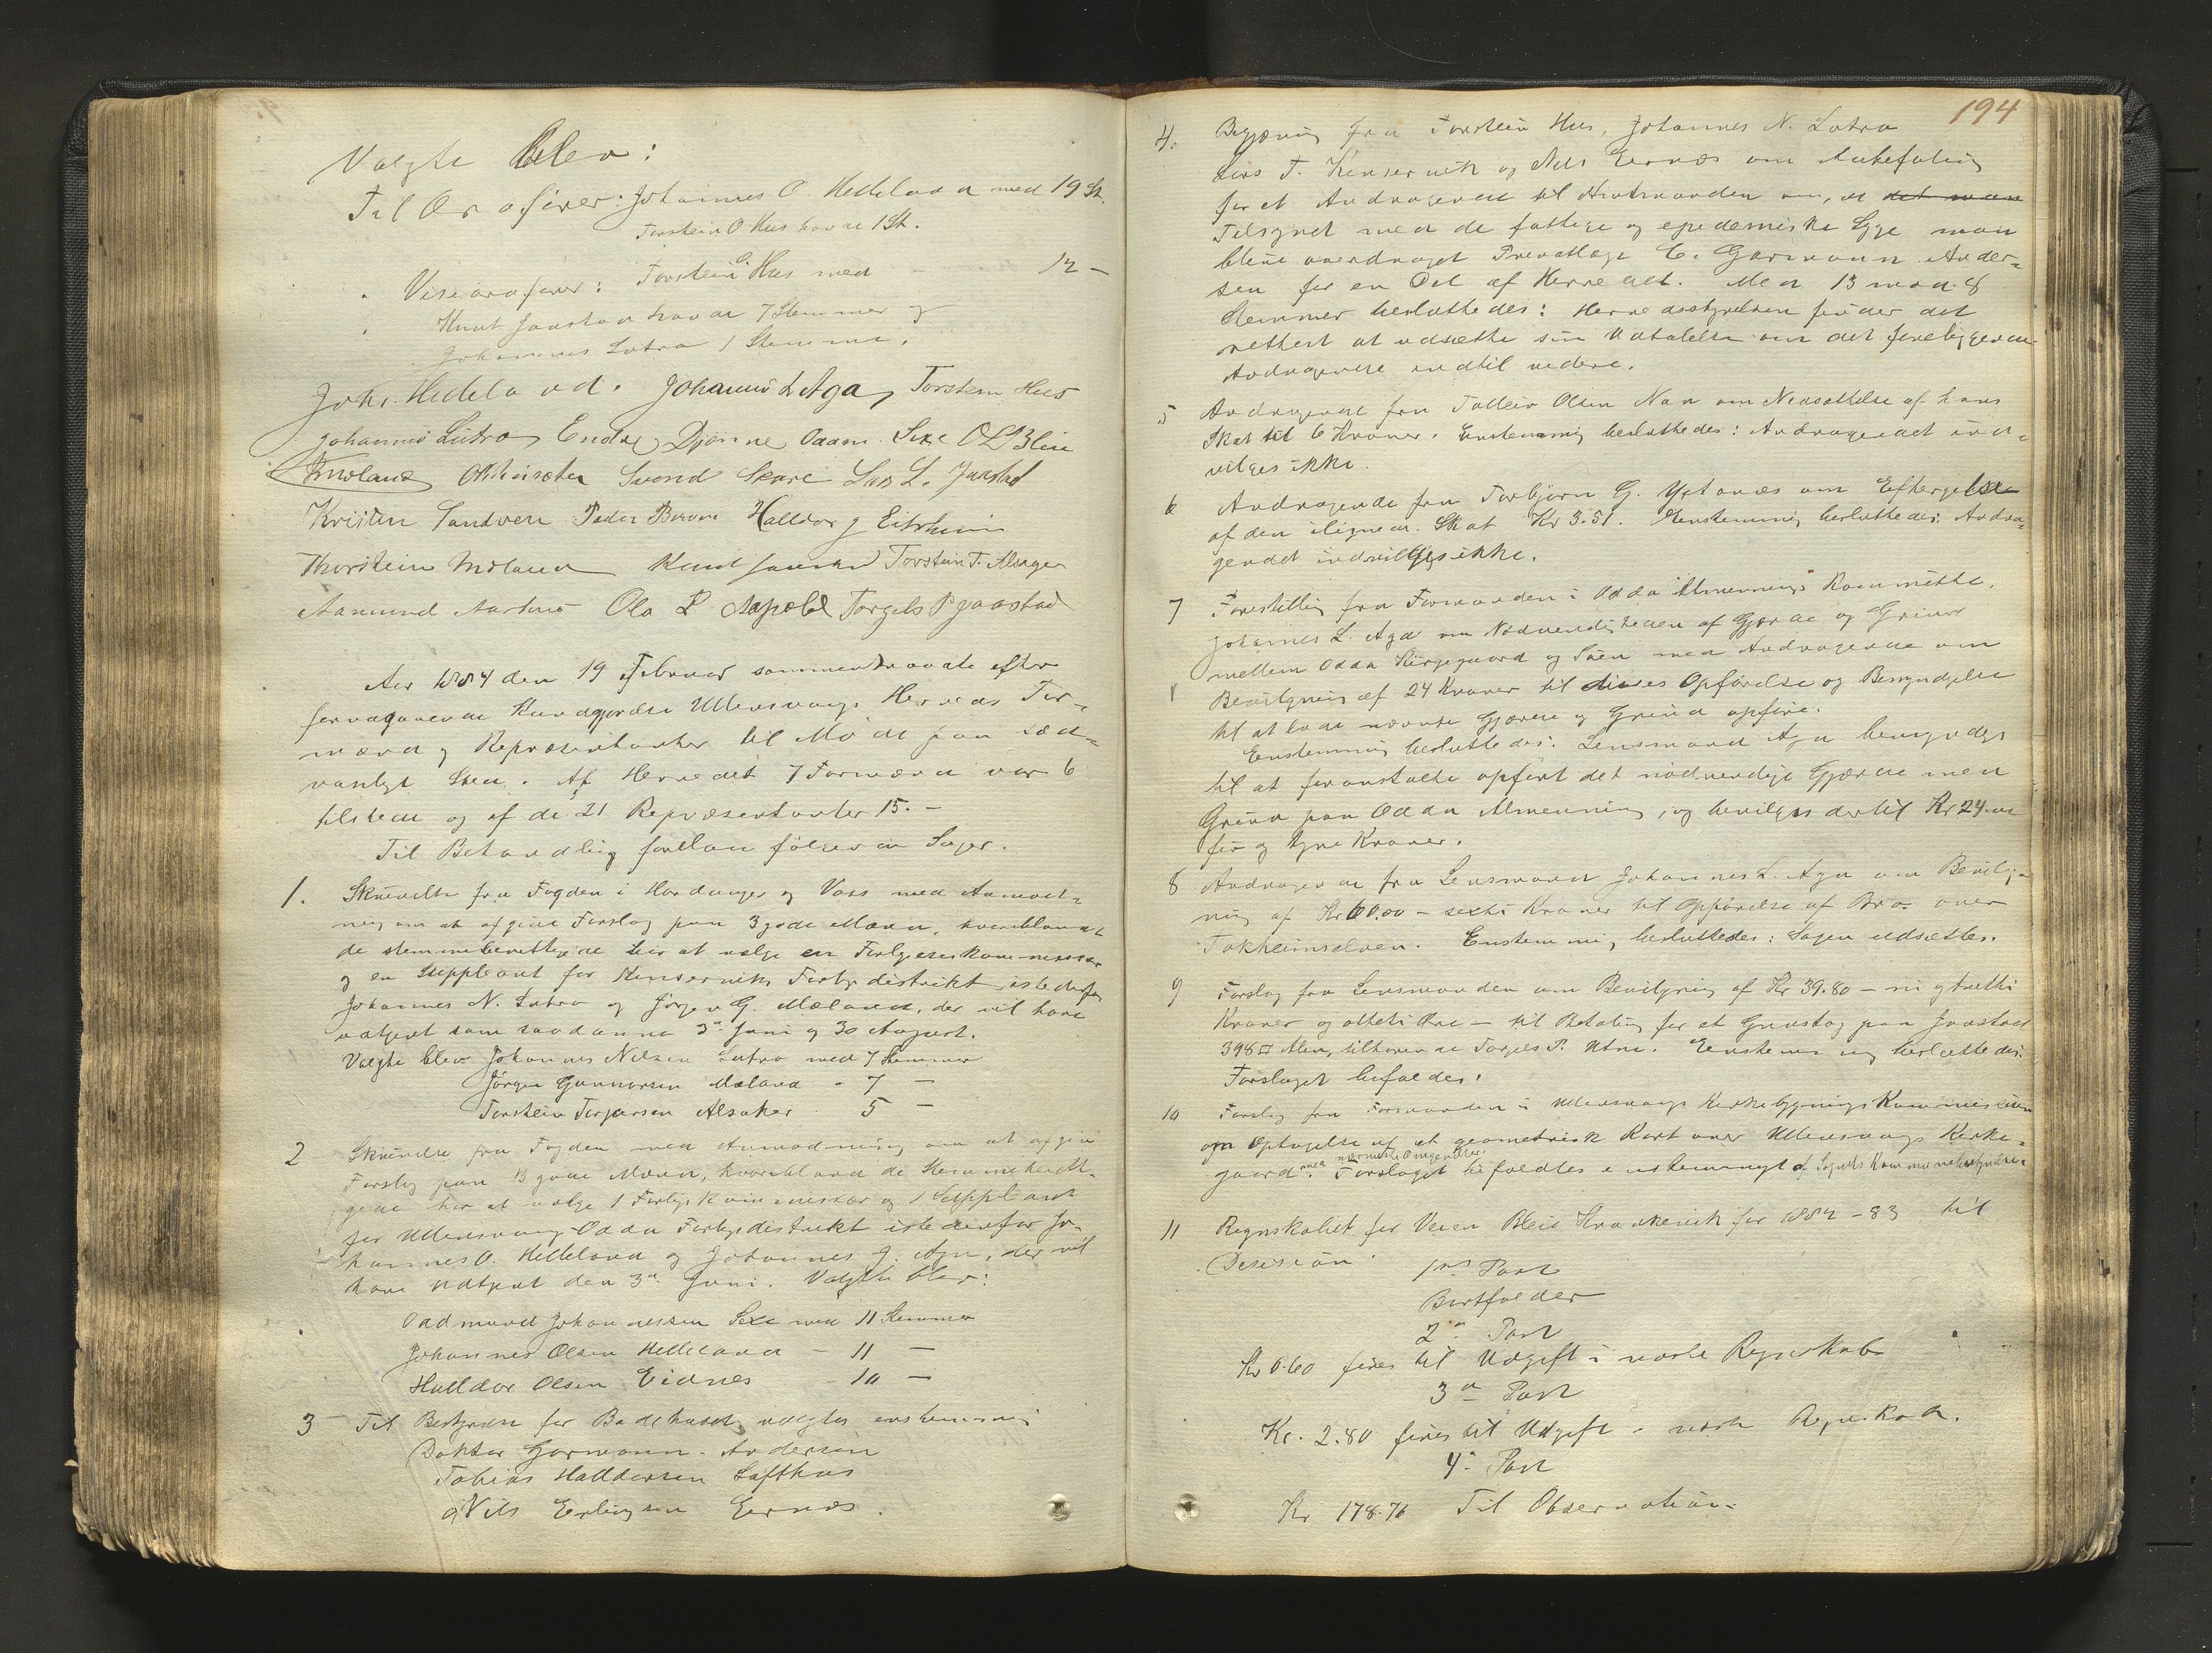 Valgte blev:
Til Ordfører: Johannes O. Helleland med 19 St.
Torstein O Hus havde 1 St.
" Viseordfører: Torstein O. Hus med - 12 -
" Knut Jaastad havde 7 Stemmer og
Johannes Lutro 1 Stemme.
Johs. Helleland. Johannes L Aga, Torstein Hus
Johannes Lutro Endre Djønne Odm. Sexe O L Blie
Svend Skare Lars L. Jaastad
Kristen Sandven Peder Halldor J Eitrheim
Thorstein Mæland Knud Jaastad Torstein T. Alsager
Aamund Ola P Aapold Torgels P Jaastad
Aar 1884 den 19 Februar sammentraadte efter
forudgaaende Kundgjørelse Ullensvangs Herreds For-
mænd og Repræsentanter til Møde paa sæd-
vanligt Sted. Af Herredets 7 Formænd var 6
tilstede og af de 21 Repræsentanter 15. -
Til Behandling forelaa følgende Sager.
1. Skrivelse fra Fogden i Hardanger og Voss med Anmod-
ning om at afgive Forslag paa 3 gode Mænd, hvoriblandt
de stemmeberettigede har at vælge en Forligelseskommissær
og en Suppleant for Kinserviks Forligsdistrikt istedenfor
Johannes N. Lutro og Jørgen G. Mæland, der vil have
udtjent som saadanne 3die Juni og 30 August.
Valgte blev Johannes Nilsen Lutro med 7 Stemmer
Jørgen Gunnarsen Mæland - 7 -
Torstein Torgersen Alsaker - 5 -
2 Skrivelse fra Fogden med Anmodning om at afgive
Forslag paa 3 gode Mænd, hvoriblandt de Stemmeberetti-
gede har at vælge 1 Forligskommissær og 1 Suppleant
for Ullensvang-Odda Forligsdistrikt istedenfor Jo-
hannes O. Helleland og Johannes J. Aga, der vil
have udtjent den 3die Juni. Valgte blev:
Oddmund Johannessen Sexe med 11 Stemmer
Johannes Olsen Helleland - 11 -
Halldor Olsen Eidnes - 10 -
3 Til Bestyrelse for Badehuset valgtes enstemmig
Doktor Garmann-Andersen
Tobias Halldorsen Lofthus
og Nils Erlingsen Eernæs.
194
4. Begjæring fra Torstein Hus, Johannes N. Lutro
Lars T. Kinservik og Nils Eernæs om Anbefaling
for et Andragende til Amtmanden om, at det maa
Tilsynet med de fattige og epedemiske Syge maa
blive overdraget Privatlæge C. Garmann Ander-
sen for en Del af Herredet. Med 13 mod 8
Stemmer besluttedes: Herredsstyrelsen finder det
rettest at udsætte sin Udtalelse om det foreliggende
Andragende indtil videre.
5 Andragende fra Tolleiv Olsen Naa om Nedsættelse af hans
Skat til 6 Kroner. Enstemmig besluttedes: Andragendet ind-
vilges ikke.
6 Andragende fra Torbjørn G. Ystanæs om Eftergivelse
af den ilignede Skat Kr 3.51. Enstemmig besluttedes: Andra-
gendet indvilges ikke.
7 Forestilling fra Formanden i Odda Almennings Kommitte,
Johannes L. Aga om Nødvendigheden af Gjærde og Grind
mellem Odda Kirkegaard og Søen med Andragende om
Bevilgning af 24 Kroner til dines Opførelse og Bemyndigelse
til at lade nævnte Gjærde og Grind opføre.
Enstemmig besluttedes: Lensmand Aga bemyndiges
til at foranstalte opført det nødvendige Gjærde med
Grind paa Odda Almenning, og bevilges dertil Kr 24.00
fir og tyve Kroner.
8 Andragende fra Lensmand Johannes L. Aga om Bevilg-
ning af Kr 60.00 - sexti Kroner til Opførelse af Bro over
Tokheimselven. Enstemmig besluttedes: Sagen udsættes.
9 Forslag fra Lensmanden om Bevilgning af Kr 39.80 - ni og tretti
Kroner og otteti Øre - til Betaling for et Grustag paa Jaastad
398 □ Alen, tilhørende Torgels P. Utne. Enstemmig besluttedes:
Forslaget bifaldes.
10 Forslag fra Formanden i Ullensvangs Kirkebygnings Kommission
om Optagelse af et geometrisk Kart over Ullensvangs Kirke-
gaard med nærmeste Omgivelser. Forslaget bifaldtes enstemmigt af Sognets Kommunebestyrelse.
11 Regnskabet for Veien Bleie Krankevik for 1882-83 til
Desision:
1ste Post
Bortfalder
2den Post
Kr 0.60 føres til Udgift i næste Regnskab
3die Post
Kr. 2.80 føres til Udgift i næste Regnskab.
4de Post
Kr 178.76 Til Observation.